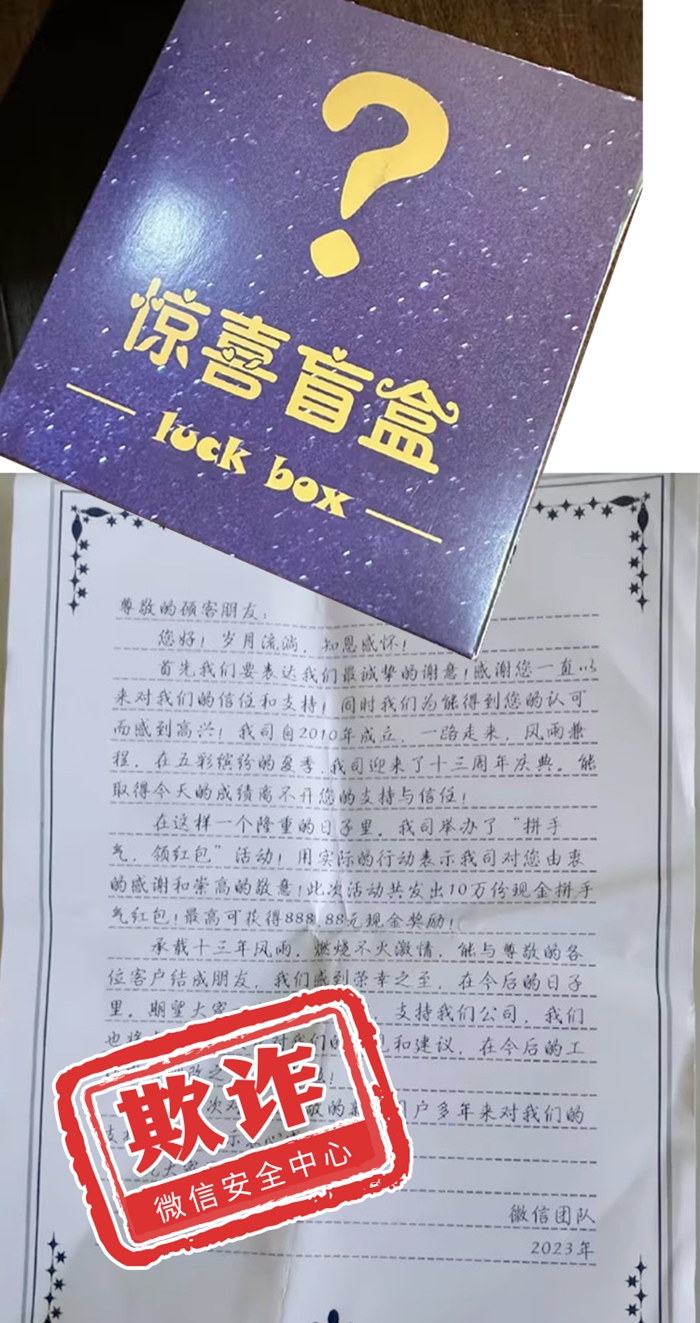 ?
惊喜盲盒
luck box
尊敬的顾客朋友：
您好！岁月流淌，知恩感怀！
首先我们要表达我们最诚挚的谢意！感谢您一直以
来对我们的信任和支持！同时我们为能得到您的认可
而感到高兴！我司自2010年成立，一路走来，风雨兼
程，在五彩缤纷的夏季，我司迎来了十三周年庆典。能
取得今天的成绩离不开您的支持与信任！
在这样一个隆重的日子里。我司举办了“拼手
气，领红包”活动！用实际的行动表示我司对您由衷
的感谢和崇高的敬意！此次活动共发出10万份现金拼手
气红包！最高可获得888.88元现金奖励！
承载十三年风雨，燃烧不火激情，能与尊敬的各
位客户结成朋友，我们感到荣幸之至，在今后的日子
里，期望大家 支持我们公司，我们
也将 对我们的 见和建议，在今后的工
改之
次对 的 户多年来对我们的
欺诈
微信安全中心
微信团队
2023年